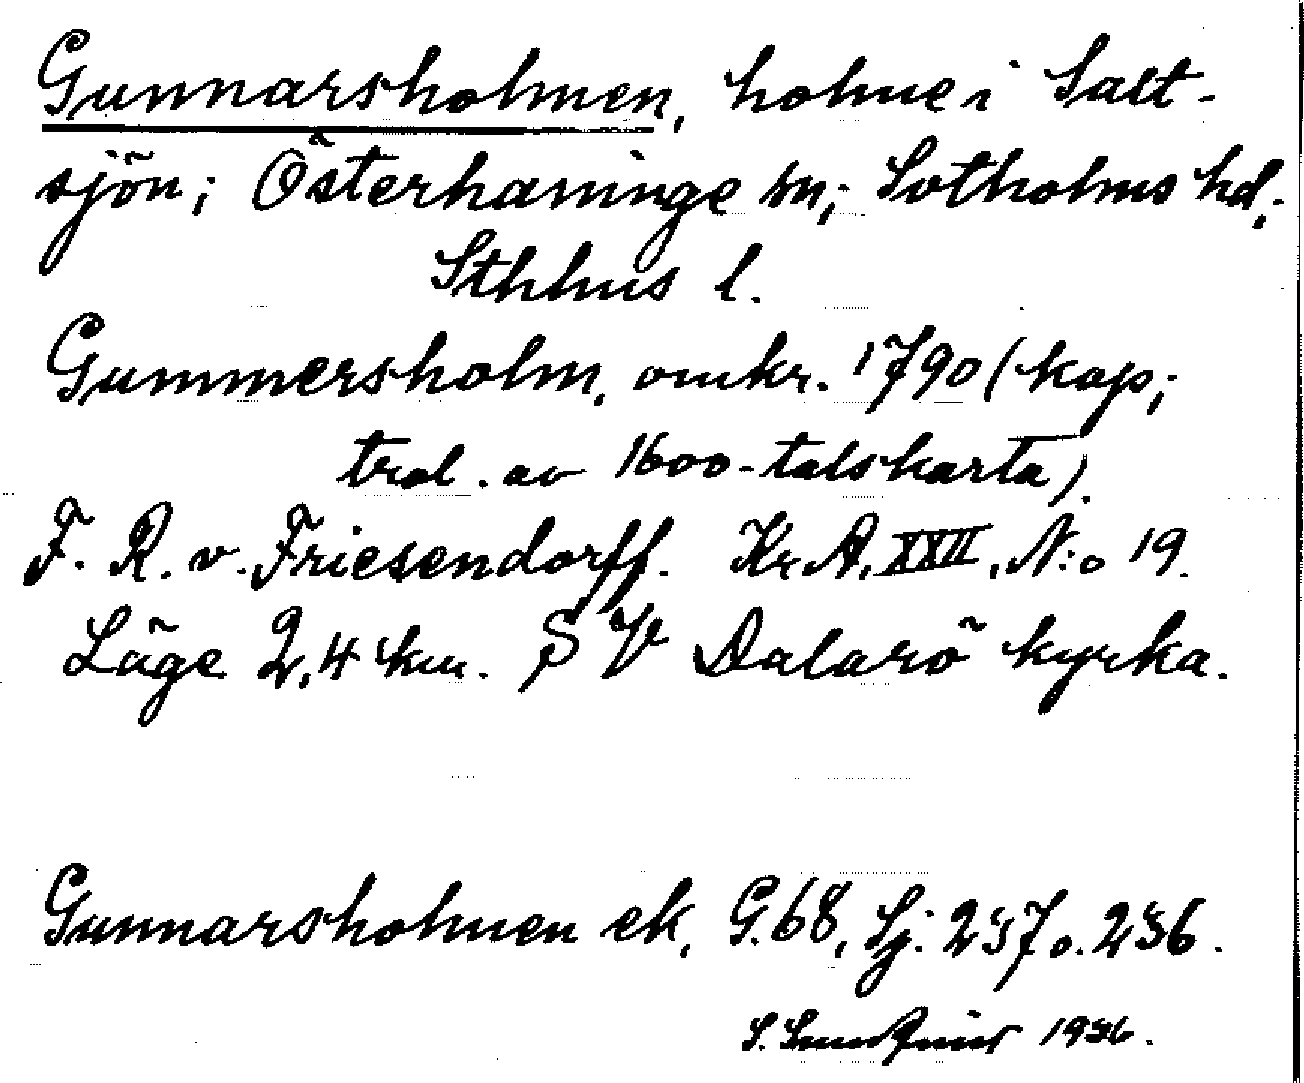 Gunnarsholmen, holme i Salt-
sjön; Österhaninge sn; Sotholms hd;
Sthlms l.
Gummersholm, omkr. 1790 (kop;
trol. av 1600-talskarta).
F. R. v. Friesendorff. Kr A, XXII, N:o 19.
Läge 2,4 km. S V Dalarö kyrka.
Gunnarsholmen ek, G.68, Sj. 237 o. 236.
S. 1936.